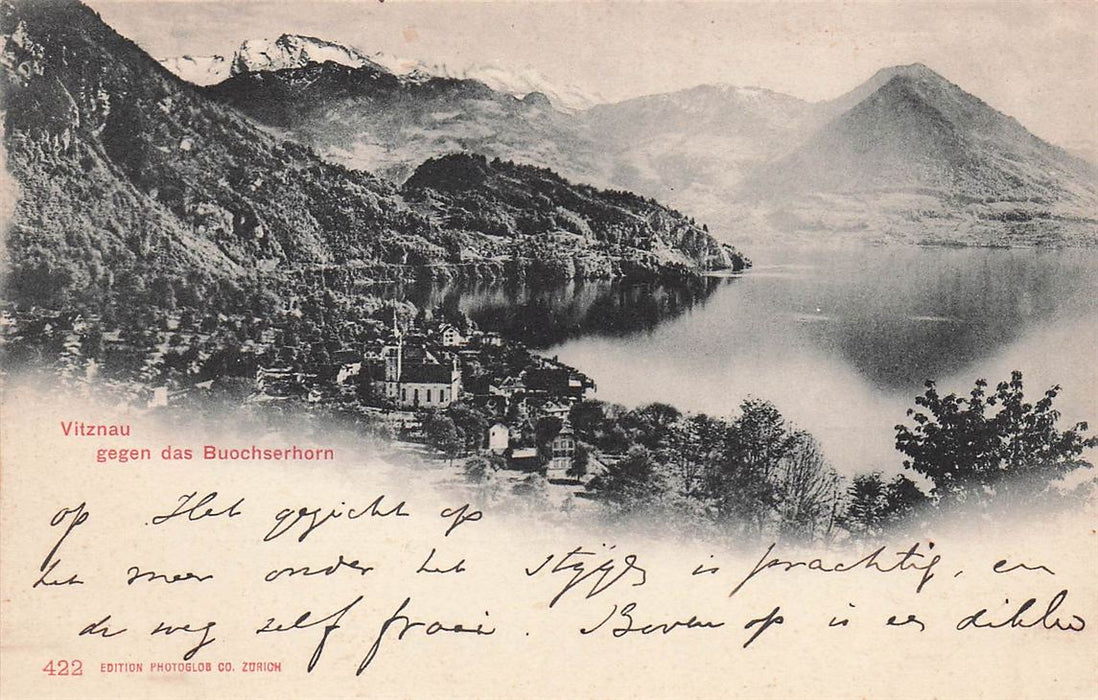 Vitznau
gegen das Buochserhorn
op Het gezicht op
het meer onder het stijgen is prachtig, en
de weg zelf fraai. Boven op is een dikke
422 EDITION PHOTOGLOB CO. ZÜRICH